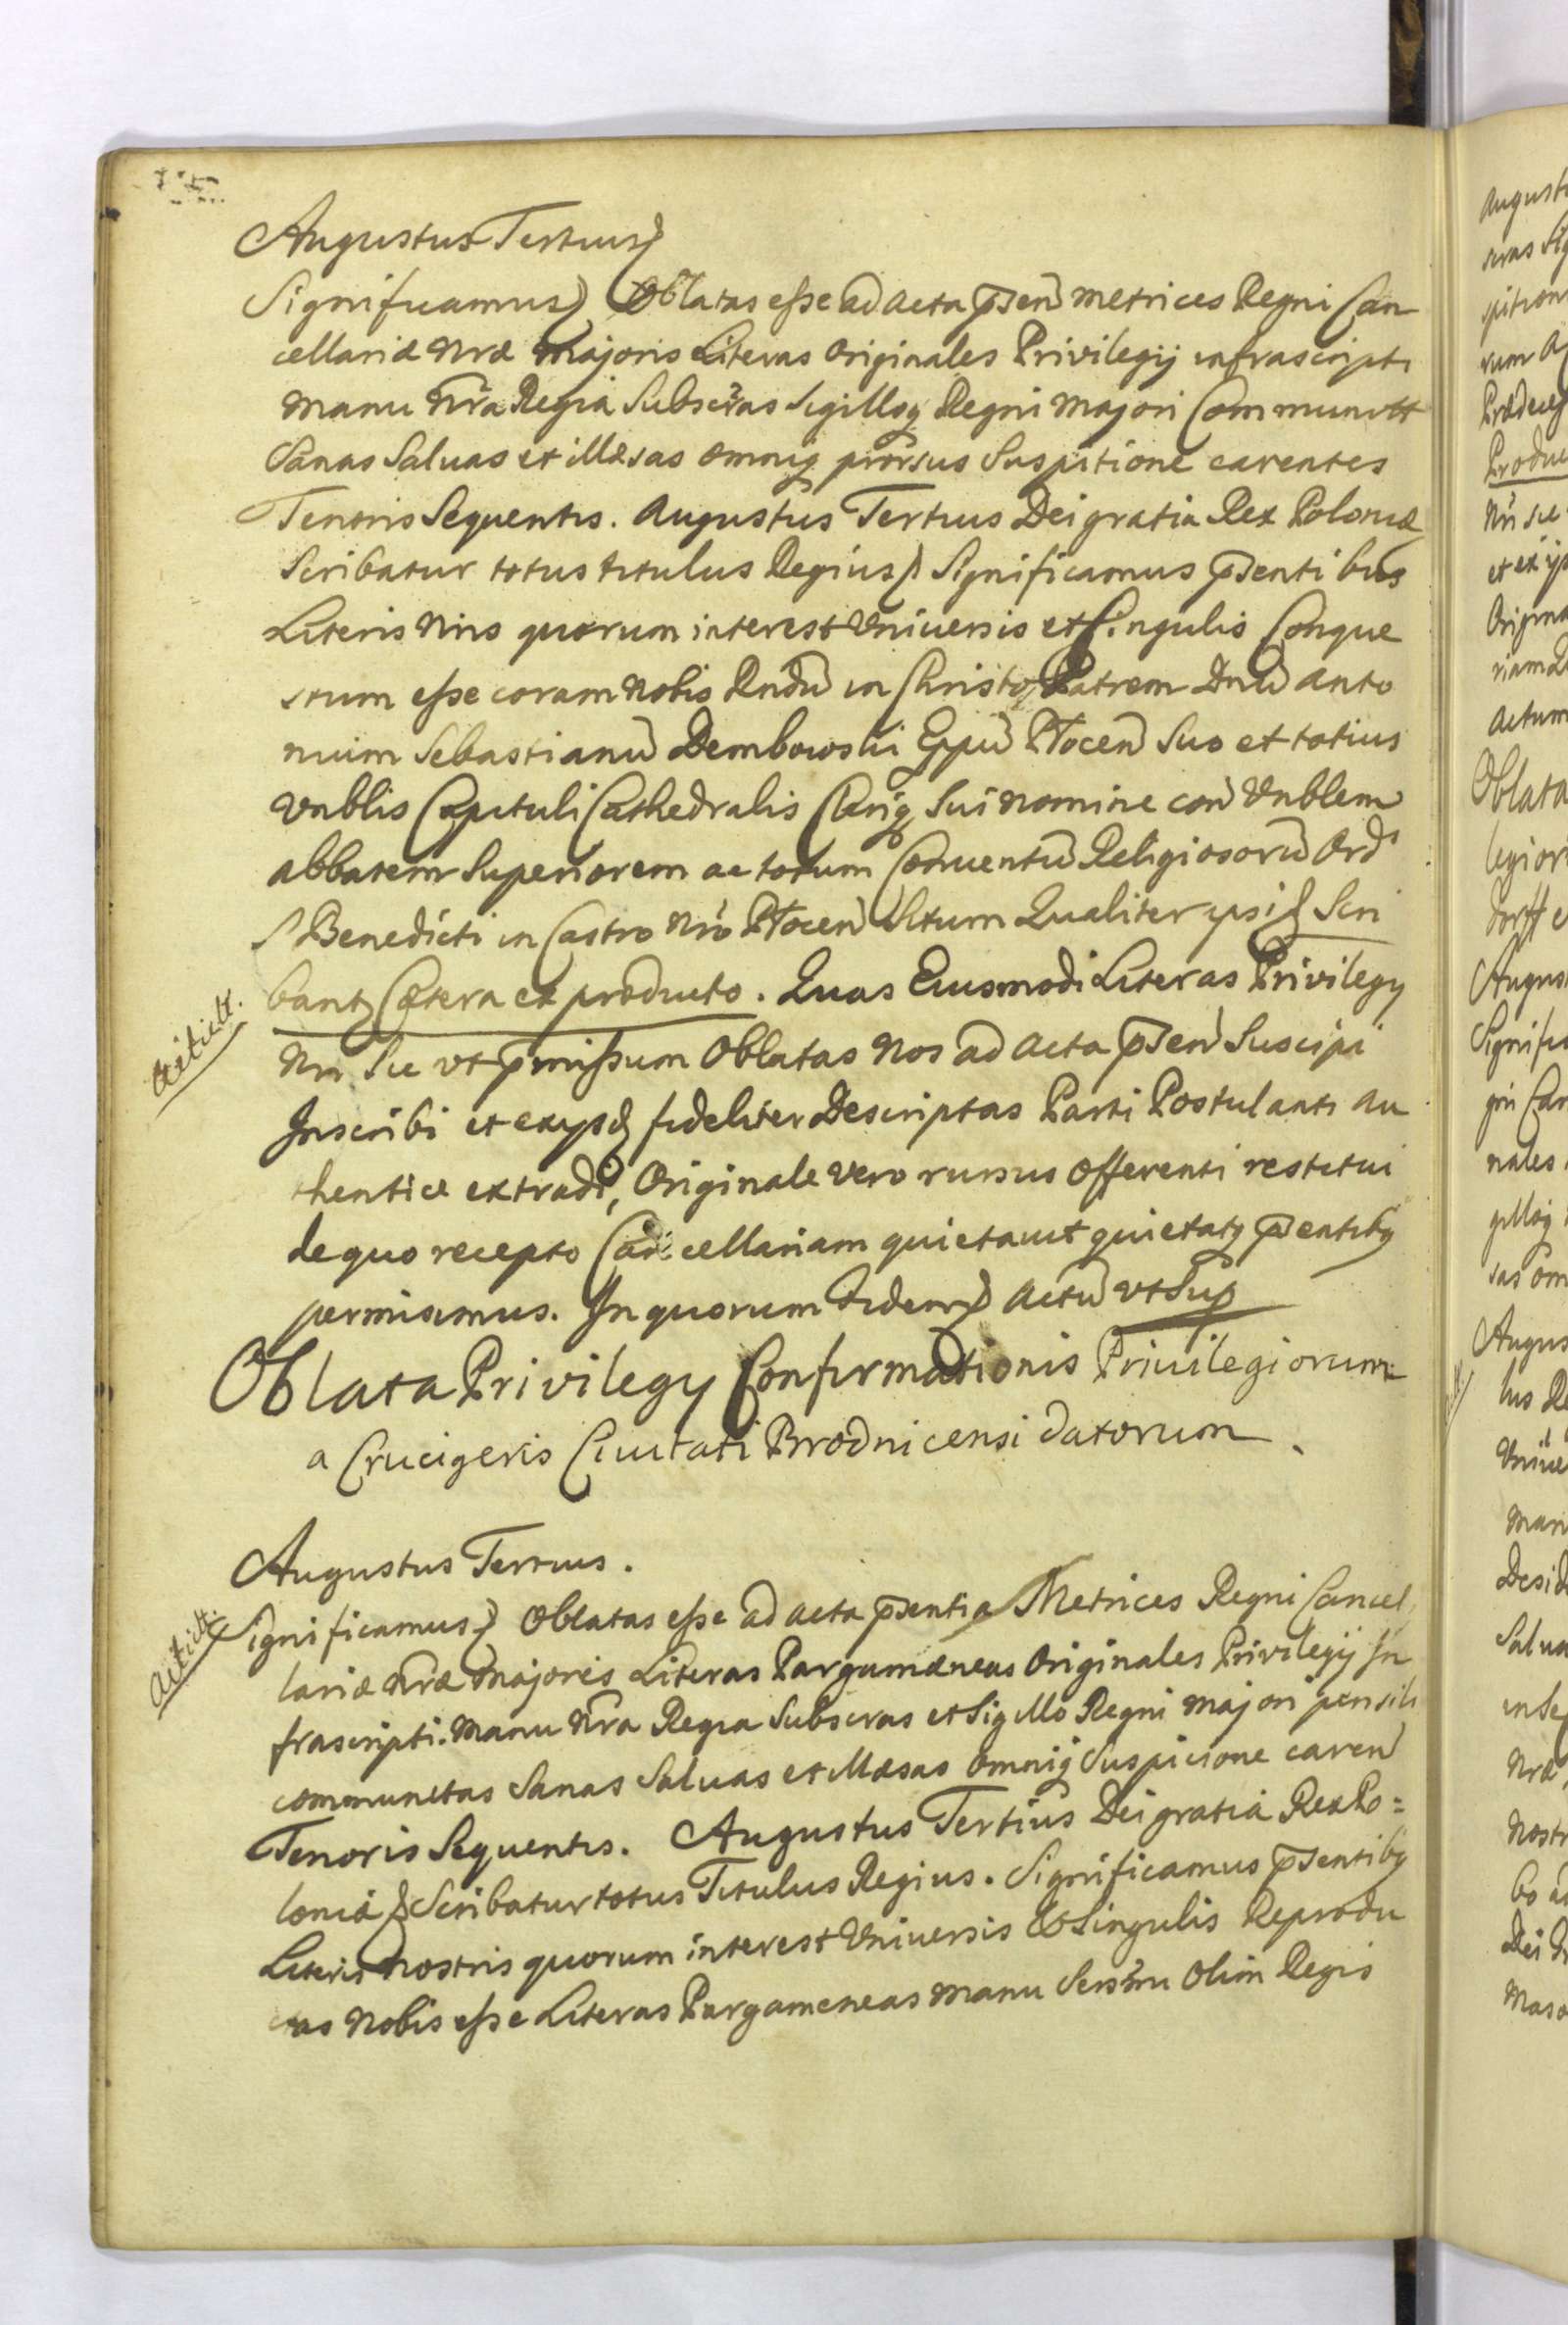 Augustus Tertius
Significamus Oblatas esse ad Acta pñsen Metrices Regni Can
cellariæ Nræ Majoris Literas Originales Privilegij infrascripti
manu Nrã Regia Subscras Sigilloq Regni Majori Communitt
Sanas Saluas et illæsas omniq prorsus Suspitione carentes
Tenoris Sequentis. Augustus Tertius Dei gratia Rex Poloniæ
Scribatur totus titulus Regius Significamus pñsentibus
Literis Nris quorum interest Vniuersis et Singulis Conque
stum esse coram Nobis Rndũ in Christo Patrem Dnũ Anto
nium Sebastianũ Dembowski Eppũ Płocen Suo et totius
Vnblis Capituli Cathedralis Cleriq Sui nomine con Vnblem
abbatem Superiorem ac totum Conuentũ Religiosorũ Ord
S Benedicti in Castro Nro Płocen Situm Qualiter ipsi Scri
bantz Cætera ex producto. Quas Eiusmodi Literas Privilegy
Nri Sic vt pmissum Oblatas Nos ad Acta pñsen Suscipi
Inscribi et exijsd fideliter Descriptas Parti Postulanti au
thentice extradi, Originale Vero rursus Offerenti restitui
de quo recepto Cancellariam quietauit quietatq pñsentibq
permisimus. In quorum Fidem Actũ vt Sup
Oblata Privilegy Confirmationis Priuilegiorum
a Crucigeris Ciuitati Brodnicensi datorum.
Augustus Tertius.
Significamus Oblatas esse ad acta pñsentia Metrices Regni Cancel
lariæ Nræ Majoris Literas Pargamæneas Originales Privilegij In
frascripti. Manu Nrã Regia Subscras et Sigillo Regni majori pensili
communitas Sanas Saluas et illæsas Omniq Suspicione caren
Tenoris Sequentis. Augustus Tertius Dei gratia Rex Po=
loniæ Scribatur totus Titulus Regius. Significamus pñsentibq
Literis Nostris quorum interest Vniuersis & Singulis Reprodu
ctas Nobis esse Literas Pargameneas manu Sersmi Olim Regis